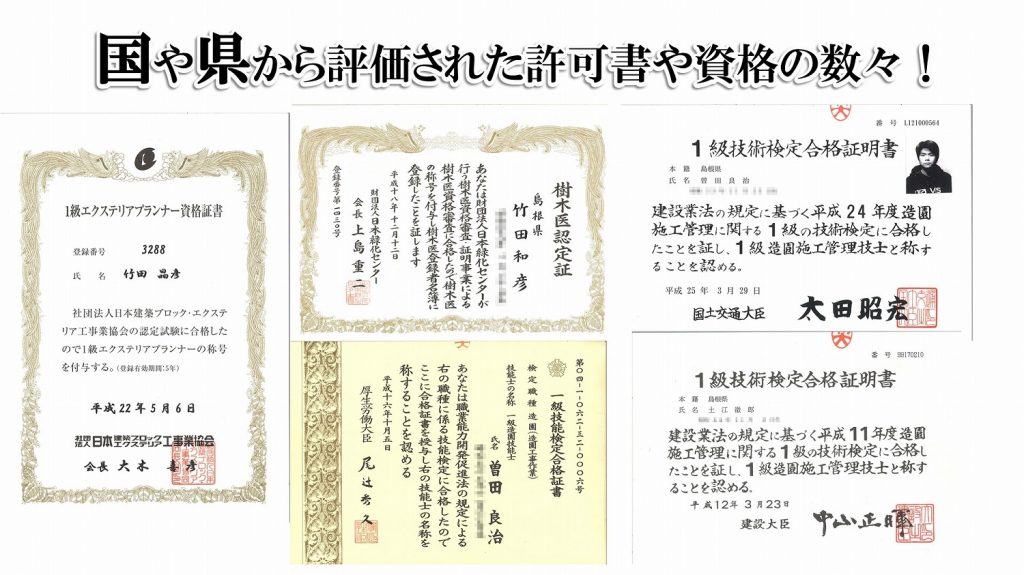 国や県から評価された許可書や資格の数々！
1級エクステリアプランナー資格証書
登録番号 3288
氏 名 竹田 晶彦
社団法人日本建築ブロック・エクステ
リア工事業協会の認定試験に合格した
ので1級エクステリアプランナーの称号
を付与する。(登録有効期間:5年)
平成22年5月6日
社団法人日本建築ブロック・エクステリア工事業協会
会長 大木 喜彦
樹木医認定証
島根県
竹田和彦
あなたは財団法人日本緑化センターが
行う樹木医資格審査・証明事業による
樹木医資格審査に合格したので樹木医
の称号を付与し樹木医登録者名簿に
登録したことを証します
平成十八年十二月十二日
財団法人日本緑化センター
会長 上島重二
登録番号第一四三〇号
第〇四-一-〇六二-三二-〇〇〇六号
一級技能検定合格証書
検定職種 造園(造園工事作業)
技能士の名称 一級造園技能士
氏名 曽田良治
あなたは職業能力開発促進法の規定による
右の職種に係る技能検定に合格したので
ここに合格証書を授与し右の技能士の名称を
称することを認める
平成十六年十月五日
厚生労働大臣 尾辻秀久
番 号 L121000564
1級技術検定合格証明書
本 籍 島根県
氏 名 曽田 良治
建設業法の規定に基づく平成24年度造園
施工管理に関する1級の技術検定に合格し
たことを証し、1級造園施工管理技士と称す
ることを認める。
平成 25 年 3 月 29 日
国土交通大臣 太田昭宏
番 号 99170210
1級技術検定合格証明書
本 籍 島根県
氏 名 土江 徹郎
建設業法の規定に基づく平成11年度造園
施工管理に関する1級の技術検定に合格し
たことを証し、1級造園施工管理技士と称す
ることを認める。
平成12年 3月23日
建設大臣 中山正暉